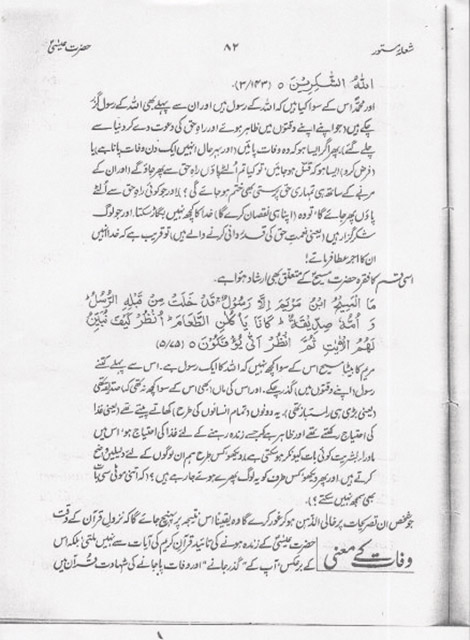 شعلۂ مستور ۸۲ حضرت عیسیٰؑ
اللّٰهُ الشّٰكِرِيْنَ ○ (۳/۱۴۳)۔
اور محمدؐ اس کے سوا کیا ہیں کہ اللہ کے رسول ہیں اور ان سے پہلے بھی اللہ کے رسول گزر
چکے ہیں (جو اپنے اپنے وقتوں میں ظاہر ہوئے اور راہِ حق کی دعوت دے کر دنیا سے
چلے گئے)، پھر اگر ایسا ہو کہ وہ وفات پائیں (اور بہرحال انہیں ایک دن وفات پانا ہے) یا
(فرض کرو) ایسا ہو کہ قتل ہو جائیں، تو کیا تم اُلٹے پاؤں راہِ حق سے پھر جاؤ گے (اور ان کے
مرنے کے ساتھ ہی تمہاری حق پرستی بھی ختم ہو جائے گی؟) اور جو کوئی راہِ حق سے اُلٹے
پاؤں پھر جائے گا، تو وہ (اپنا ہی نقصان کرے گا) خدا کا کچھ نہیں بگاڑ سکتا۔ اور جو لوگ
شکر گزار ہیں (یعنی نعمتِ حق کی قدر دانی کرنے والے ہیں) تو قریب ہے کہ خدا انہیں
ان کا اجر عطا فرمائے!
اسی قسم کا فقرہ حضرت مسیحؑ کے متعلق بھی ارشاد ہوا ہے۔
مَا الْمَسِيْحُ ابْنُ مَرْيَمَ اِلَّا رَسُوْلٌ ۚ قَدْ خَلَتْ مِنْ قَبْلِهِ الرُّسُلُ ؕ
وَ اُمُّهٗ صِدِّيْقَةٌ ؕ كَانَا يَاْكُلٰنِ الطَّعَامَ ؕ اُنْظُرْ كَيْفَ نُبَيِّنُ
لَهُمُ الْاٰيٰتِ ثُمَّ انْظُرْ اَنّٰى يُؤْفَكُوْنَ ○ (۵/۷۵)
مریم کا بیٹا مسیح اس کے سوا کچھ نہیں کہ اللہ کا ایک رسول ہے۔ اس سے پہلے کتنے
رسول (اپنے وقتوں میں) گذر چکے۔ اور اس کی ماں (بھی اس کے سوا کچھ نہ تھی کہ) صدیقہ تھی
(یعنی بڑی ہی راستباز تھی)۔ یہ دونوں (تمام انسانوں کی طرح) کھاتے پیتے تھے (یعنی غذا
کی احتیاج رکھتے تھے اور ظاہر ہے کہ جسے زندہ رہنے کے لئے غذا کی احتیاج ہو، اس میں
ماورائے بشریت کوئی بات کیونکر ہو سکتی ہے) دیکھو کس طرح ہم ان لوگوں کے لئے دلیلیں واضح
کرتے ہیں، اور پھر دیکھو کس طرف کو یہ لوگ پھرے ہوئے جا رہے ہیں؟ (کہ اتنی موٹی سی بات
بھی سمجھ نہیں سکتے؟)۔
جو شخص ان تصریحات پر خالی الذہن ہو کر غور کرے گا وہ یقیناً اس نتیجہ پر پہنچ جائے گا کہ نزولِ قرآن کے وقت
وفات کے معنی حضرت عیسیٰؑ کے زندہ ہونے کی تائید قرآن کریم کی آیات سے نہیں ملتی! بلکہ اس
کے برعکس، آپ کے "گذر جانے" اور وفات پا جانے کی شہادت قرآن میں